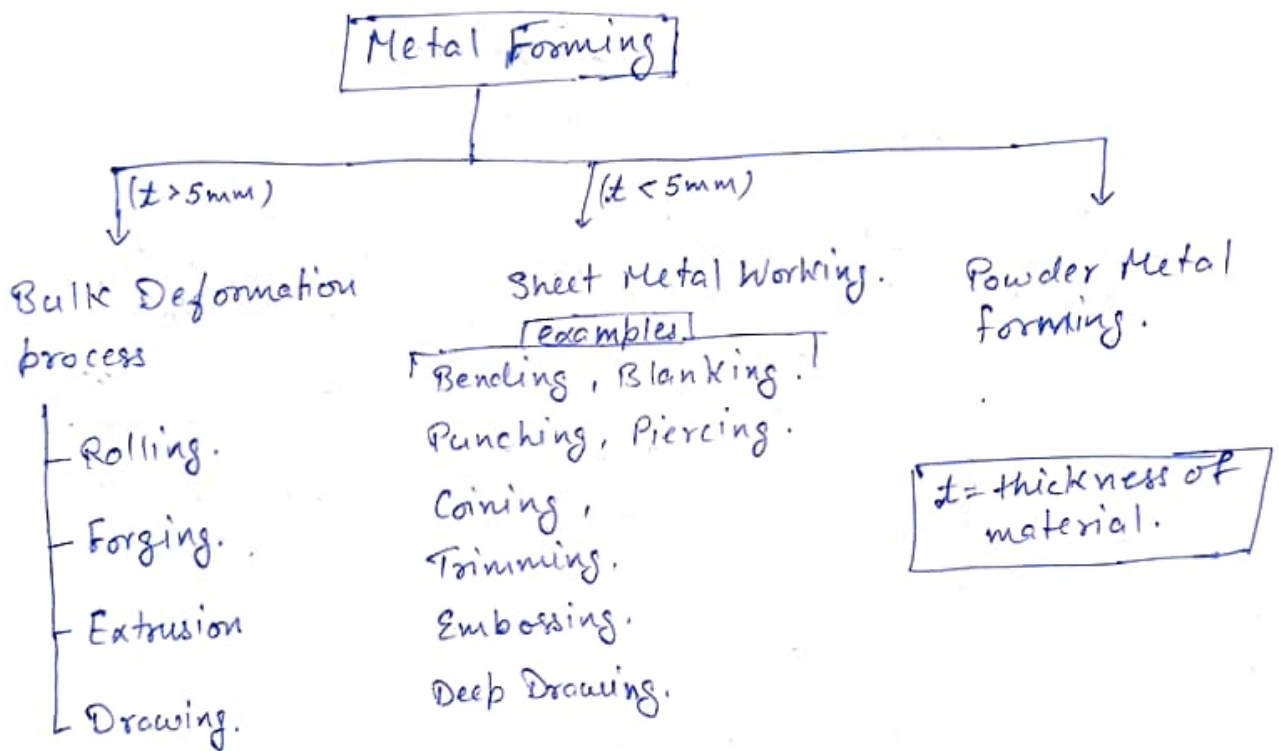 Metal Forming
(t > 5mm)
(t < 5mm)
Bulk Deformation
process
Rolling.
Forging.
Extrusion
Drawing.
Sheet Metal Working.
examples
Bending, Blanking.
Punching, Piercing.
Coining,
Trimming.
Embossing.
Deep Drawing.
Powder Metal
forming.
t = thickness of
material.